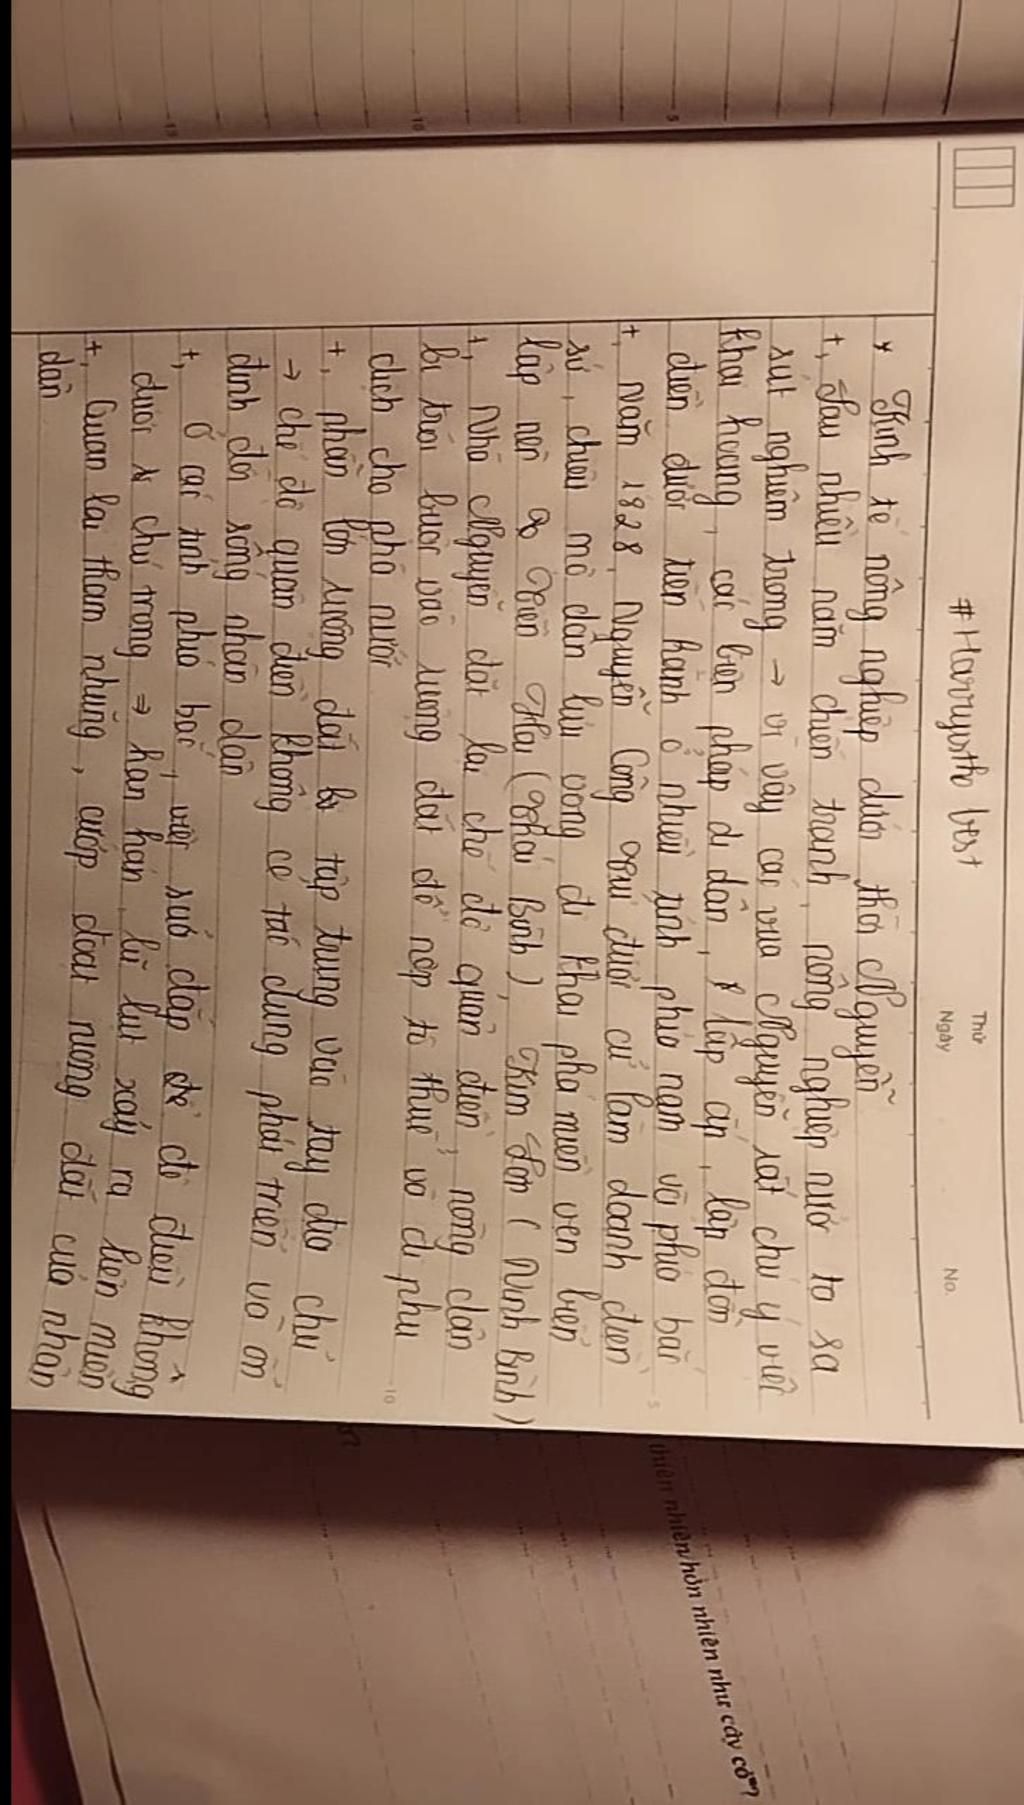 Thứ
Ngày
No.
#Harryisthe best
* Kinh tế nông nghiệp dưới thời Nguyễn
+, Sau nhiều năm chiến tranh, nông nghiệp nước ta sa
sút nghiêm trọng → vì vậy các vua Nguyễn rất chú ý việc
khai hoang, các biện pháp di dân, lập ấp, lập đồn
điền được tiến hành ở nhiều tỉnh phía nam và phía bắc
+, Năm 1828, Nguyễn Công Trứ được cử làm doanh điền
sứ, chiêu mộ dân lưu vong đi khai phá miền ven biển
lập nên Tiền Hải (Thái Bình), Kim Sơn (Ninh Bình)
+, Nhà Nguyễn đặt lại chế độ quân điền, nông dân
bị trói buộc vào ruộng đất để nộp tô thuế và đi phu
dịch cho nhà nước
+, phần lớn ruộng đất bị tập trung vào tay địa chủ
→ chế độ quân điền không có tác dụng phát triển và ổn
định đời sống nhân dân
+, Ở các tỉnh phía bắc, việc sửa đắp đê điều không
được chú trọng ⇒ hạn hán, lũ lụt xảy ra liên miên
+, Quan lại tham nhũng, cướp đoạt ruộng đất của nhân
dân
5
10
15
5
10
thiên nhiên/hồn nhiên như cây cỏ"?